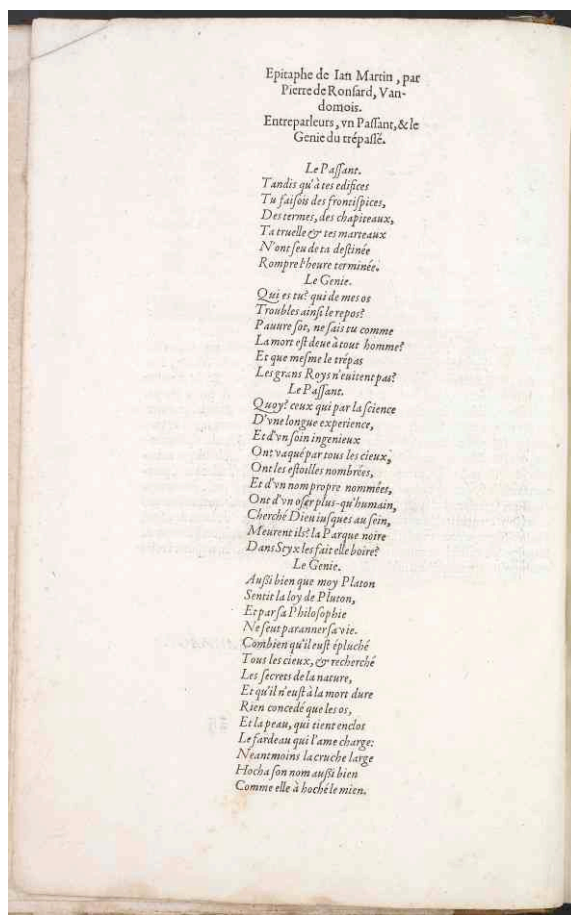 Epitaphe de Ian Martin, par
Pierre de Ronſard, Van-
domois.
Entreparleurs, vn Paſſant, & le
Genie du trépaſſé.
Le Paſſant.
Tandis qu'à tes edifices
Tu faiſois des frontiſpices,
Des termes, des chapiteaux,
Ta truelle & tes marteaux
N'ont ſeu de ta deſtinée
Rompre l'heure terminée.
Le Genie.
Qui es tu? qui de mes os
Troubles ainſi le repos?
Pauure ſot, ne ſais tu comme
La mort eſt deue à tout homme?
Et que meſme le trépas
Les grans Roys n'euitent pas?
Le Paſſant.
Quoy? ceux qui par la ſcience
D'vne longue experience,
Et d'vn ſoin ingenieux
Ont vaqué par tous les cieux,
Ont les eſtoilles nombrées,
Et d'vn nom propre nommées,
Ont d'vn oſer plus-qu'humain,
Cherché Dieu iuſques au ſein,
Meurent ils? la Parque noire
Dans Styx les fait elle boire?
Le Genie.
Auſſi bien que moy Platon
Sentit la loy de Pluton,
Et par ſa Philoſophie
Ne ſeut paranner ſa vie.
Combien qu'il euſt épluché
Tous les cieux, & recherché
Les ſecrets de la nature,
Et qu'il n'euſt à la mort dure
Rien concedé que les os,
Et la peau, qui tient enclot
Le fardeau qui l'ame charge:
Neantmoins la cruche large
Hocha ſon nom auſſi bien
Comme elle à hoché le mien.